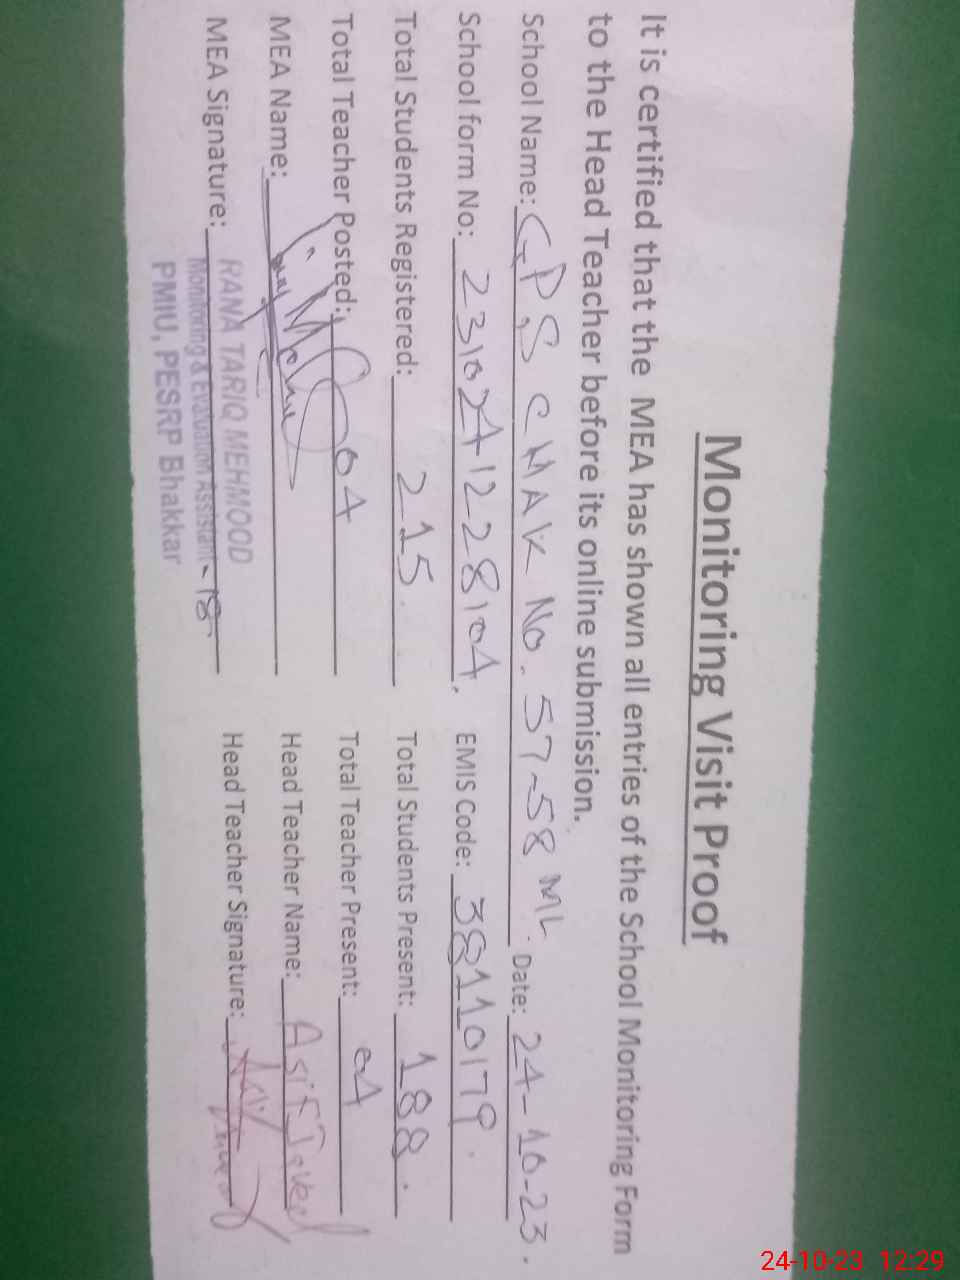 Monitoring Visit Proof
It is certified that the MEA has shown all entries of the School Monitoring Form
to the Head Teacher before its online submission.
School Name: GPS CHAK No. 57-58 ML. Date: 24-10-23.
School form No: 2310241228104. EMIS Code: 38110179.
Total Students Registered: 215. Total Students Present: 188.
Total Teacher Posted: 04 Total Teacher Present: 04
MEA Name: Head Teacher Name: Asif Javed
MEA Signature: Head Teacher Signature:
RANA TARIQ MEHMOOD
Monitoring & Evaluation Assistant - 18
PMIU, PESRP Bhakkar
24-10-23 12:29